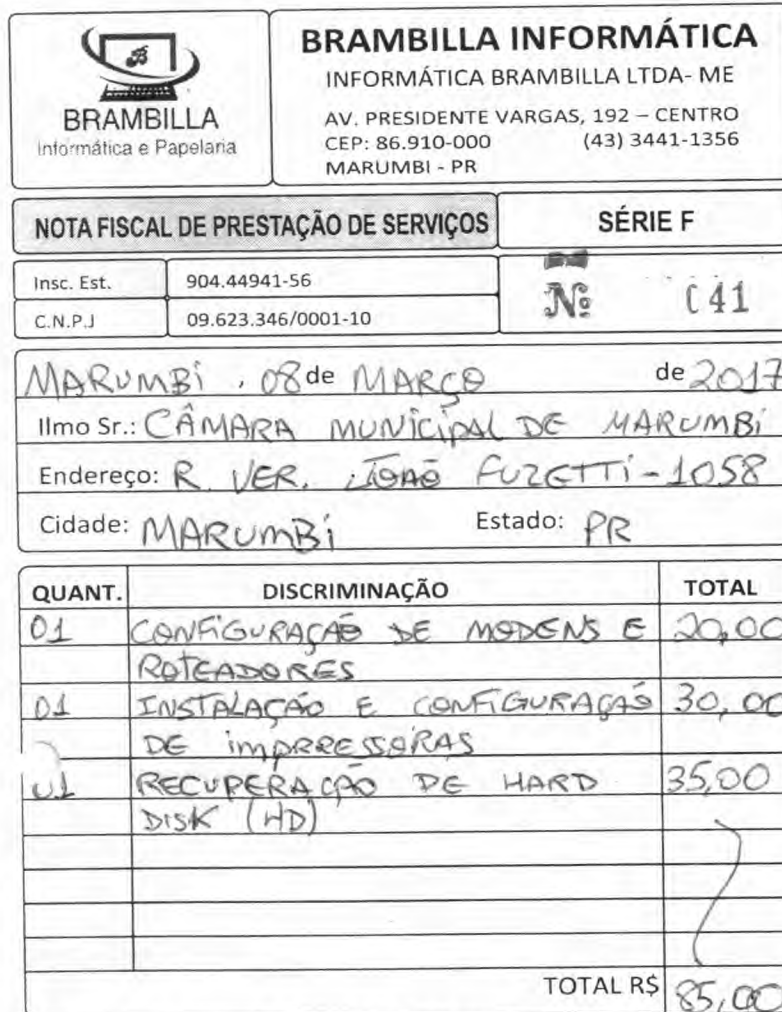 BRAMBILLA
Informática e Papelaria
BRAMBILLA INFORMÁTICA
INFORMÁTICA BRAMBILLA LTDA- ME
AV. PRESIDENTE VARGAS, 192 – CENTRO
CEP: 86.910-000 (43) 3441-1356
MARUMBI - PR
NOTA FISCAL DE PRESTAÇÃO DE SERVIÇOS SÉRIE F
Insc. Est. 904.44941-56
C.N.P.J 09.623.346/0001-10
Nº 041
MARUMBI, 08 de MARÇO de 2017
Ilmo Sr.: CÂMARA MUNICIPAL DE MARUMBI
Endereço: R. VER. JOÃO FUZETTI - 1058
Cidade: MARUMBI Estado: PR
QUANT. DISCRIMINAÇÃO TOTAL
01 CONFIGURAÇÃO DE MODENS E 20,00
ROTEADORES
01 INSTALAÇÃO E CONFIGURAÇÃO 30,00
DE IMPRRESSORAS
01 RECUPERAÇÃO DE HARD 35,00
DISK (HD)
TOTAL R$ 85,00